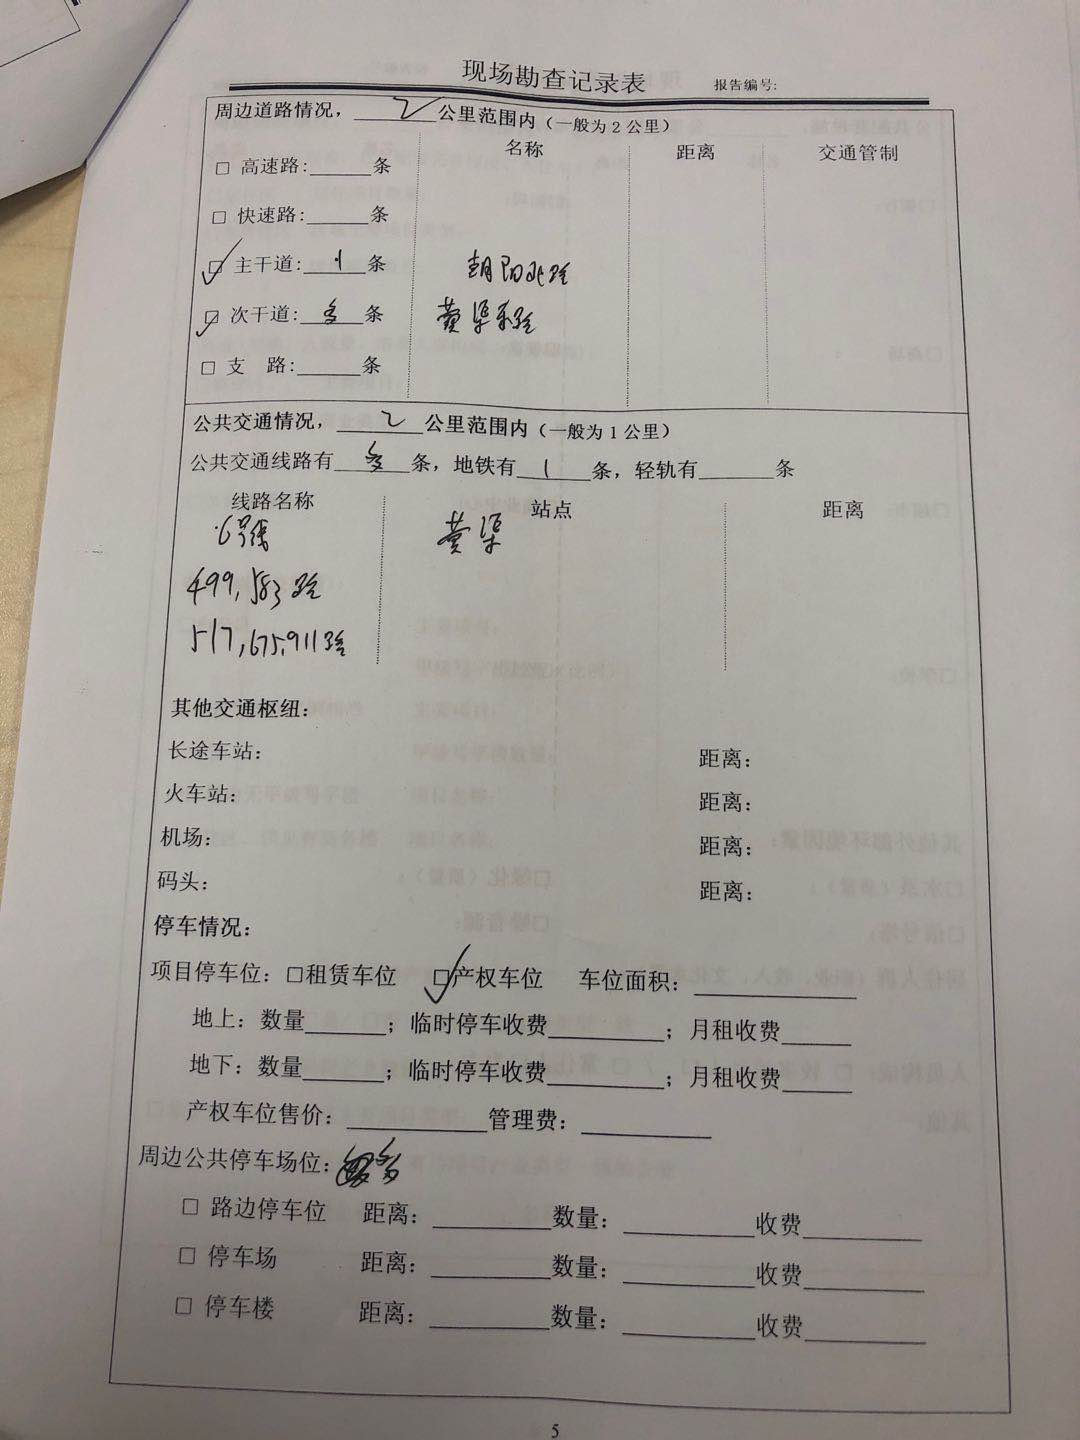 现场勘查记录表 报告编号:
周边道路情况，2公里范围内（一般为2公里）
名称 距离 交通管制
□ 高速路:______条
□ 快速路:______条
☑ 主干道:1条 朝阳北路
☑ 次干道:多条 黄渠东路
□ 支 路:______条
公共交通情况，2公里范围内（一般为1公里）
公共交通线路有多条，地铁有1条，轻轨有______条
线路名称 站点 距离
6号线 黄渠
499,583路
517,675,911路
其他交通枢纽：
长途车站： 距离：
火车站： 距离：
机场： 距离：
码头： 距离：
停车情况：
项目停车位：□租赁车位 ☑产权车位 车位面积：______
地上：数量______；临时停车收费______；月租收费______
地下：数量______；临时停车收费______；月租收费______
产权车位售价：______管理费：______
周边公共停车场位：
□ 路边停车位 距离：______数量：______收费______
□ 停车场 距离：______数量：______收费______
□ 停车楼 距离：______数量：______收费______
5